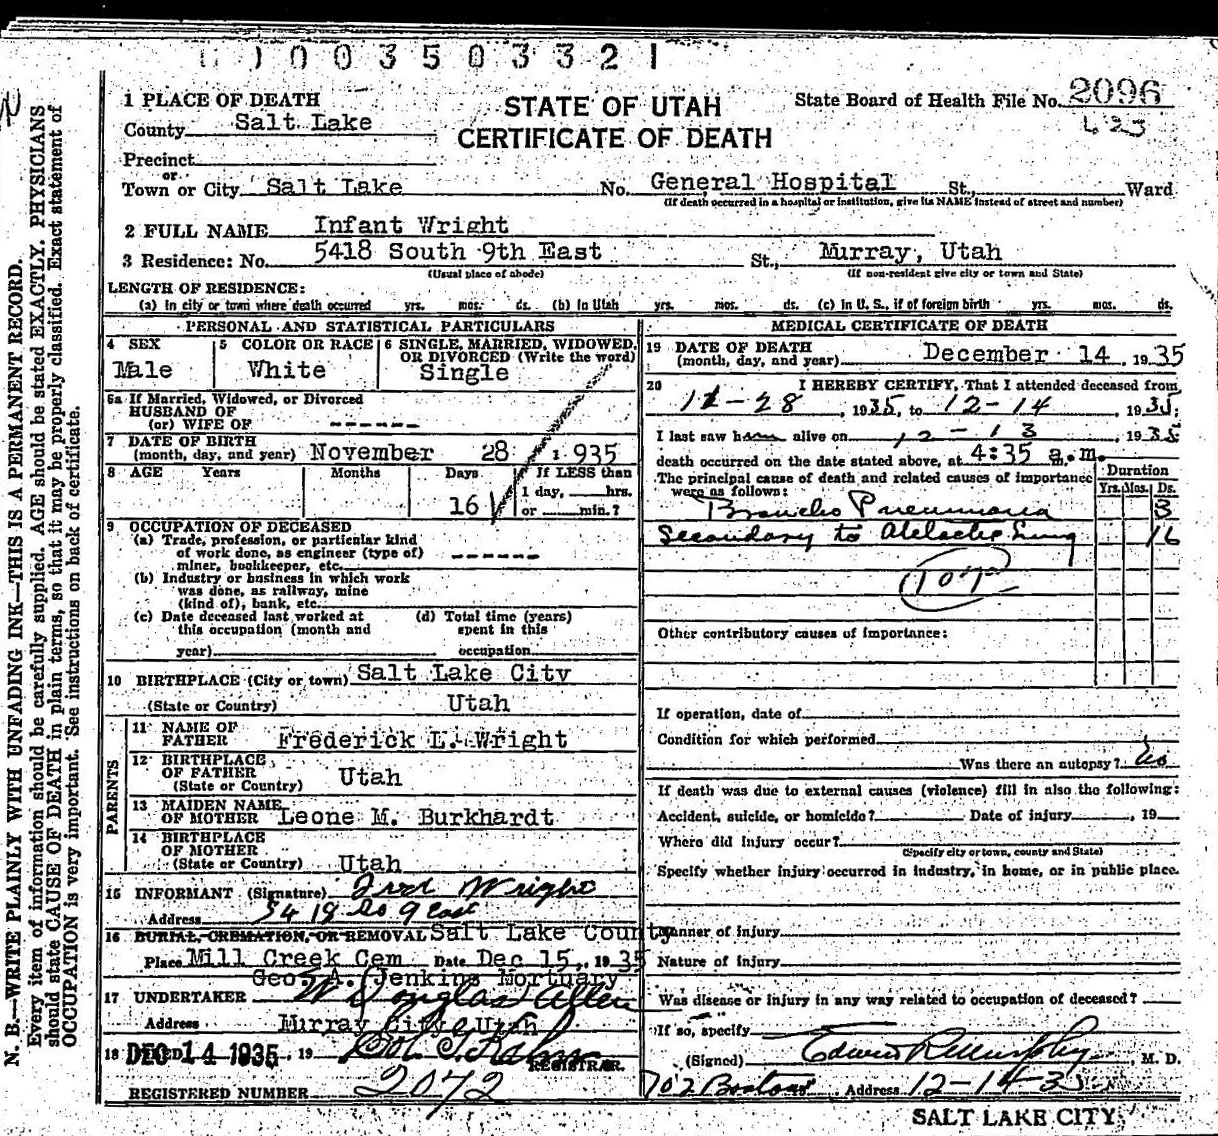 0 0 3 5 0 3 3 2 1
STATE OF UTAH
CERTIFICATE OF DEATH
State Board of Health File No. 2096
423
1 PLACE OF DEATH
County Salt Lake
Precinct
or
Town or City Salt Lake No. General Hospital St., Ward
(If death occurred in a hospital or institution, give its NAME instead of street and number)
2 FULL NAME Infant Wright
3 Residence: No. 5418 South 9th East St., Murray, Utah
(Usual place of abode) (If non-resident give city or town and State)
LENGTH OF RESIDENCE:
(a) In city or town where death occurred yrs. mos. ds. (b) In Utah yrs. mos. ds. (c) In U. S., if of foreign birth yrs. mos. ds.
PERSONAL AND STATISTICAL PARTICULARS
4 SEX
Male
5 COLOR OR RACE
White
6 SINGLE, MARRIED, WIDOWED, OR DIVORCED (Write the word)
Single
6a If Married, Widowed, or Divorced
HUSBAND OF
(or) WIFE OF ------
7 DATE OF BIRTH
(month, day, and year) November 28 1935
8 AGE Years Months Days If LESS than
16 1 day, hrs.
or min.?
9 OCCUPATION OF DECEASED
(a) Trade, profession, or particular kind
of work done, as engineer (type of)
miner, bookkeeper, etc. ------
(b) Industry or business in which work
was done, as railway, mine
(kind of), bank, etc.
(c) Date deceased last worked at
this occupation (month and
year)
(d) Total time (years)
spent in this
occupation
10 BIRTHPLACE (City or town) Salt Lake City
(State or Country) Utah
PARENTS
11 NAME OF
FATHER Frederick L. Wright
12 BIRTHPLACE
OF FATHER
(State or Country) Utah
13 MAIDEN NAME
OF MOTHER Leone M. Burkhardt
14 BIRTHPLACE
OF MOTHER
(State or Country) Utah
15 INFORMANT (Signature) Fred Wright
Address 5418 So 9 East
16 BURIAL, CREMATION, OR REMOVAL Salt Lake County
Place Mill Creek Cem Date Dec 15, 1935
Geo. A. Jenkins Mortuary
17 UNDERTAKER W Douglas Allen
Address Murray City Utah
18 FILED DEC 14 1935, 19
REGISTRAR.
REGISTERED NUMBER 2072
MEDICAL CERTIFICATE OF DEATH
19 DATE OF DEATH
(month, day, and year) December 14, 1935
20 I HEREBY CERTIFY, That I attended deceased from
11-28, 1935, to 12-14, 1935;
I last saw him alive on 12-13, 1935
death occurred on the date stated above, at 4:35 a.m.
The principal cause of death and related causes of importance
were as follows:
Duration
Yrs. Mos. Ds.
Broncho Pneumonia 3
Secondary to Atelectic Lung 16
107a
Other contributory causes of importance:
If operation, date of
Condition for which performed
Was there an autopsy? No
If death was due to external causes (violence) fill in also the following:
Accident, suicide, or homicide? Date of injury, 19
Where did injury occur?
(Specify city or town, county and State)
Specify whether injury occurred in industry, in home, or in public place.
Manner of injury
Nature of injury
Was disease or injury in any way related to occupation of deceased?
If so, specify
(Signed) Edwin R Murphy M. D.
702 Boston Address 12-14-35
SALT LAKE CITY
N. B.—WRITE PLAINLY WITH UNFADING INK—THIS IS A PERMANENT RECORD.
Every item of information should be carefully supplied. AGE should be stated EXACTLY. PHYSICIANS
should state CAUSE OF DEATH in plain terms, so that it may be properly classified. Exact statement of
OCCUPATION is very important. See instructions on back of certificate.